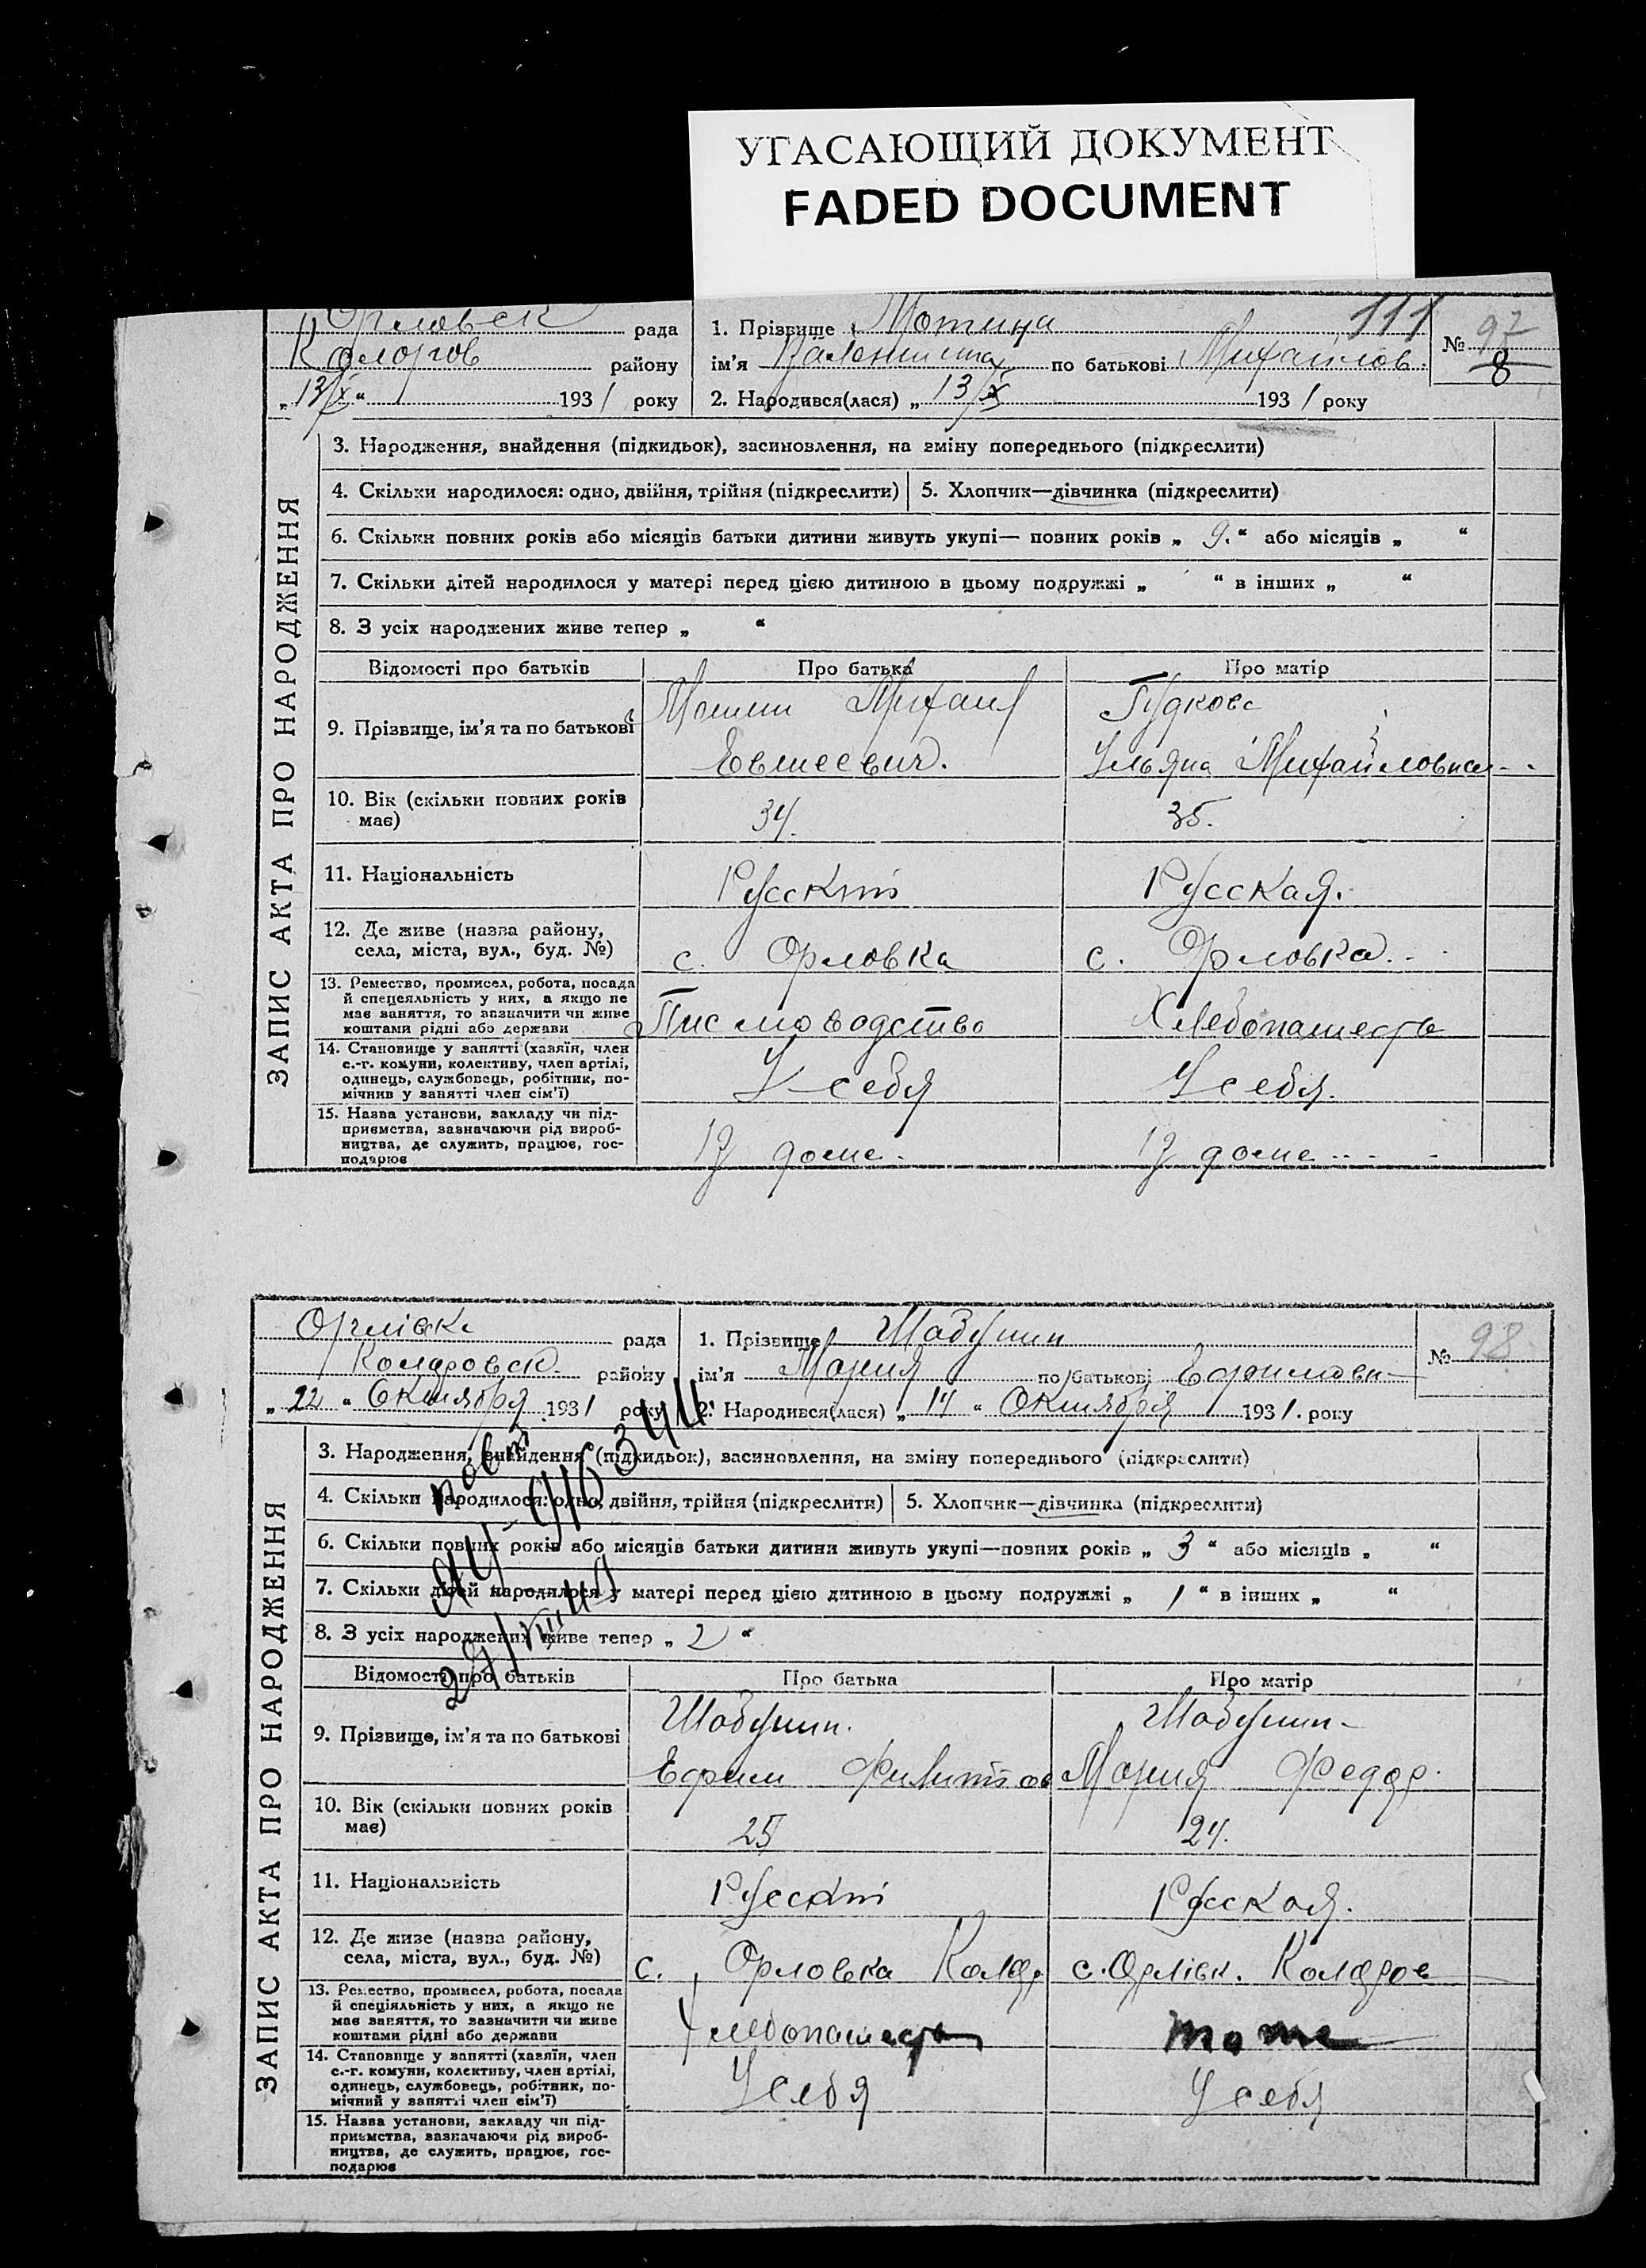 УГАСАЮЩИЙ ДОКУМЕНТ
FADED DOCUMENT
Орловск рада
району
„13/X“ 1931 року
1. Прізвище Мотина 111
ім'я Валентина по батькові Михайлов.
2. Народився(лася) „13/X 1931 року
№ 97
8
ЗАПИС АКТА ПРО НАРОДЖЕННЯ
3. Народження, знайдення (підкидьок), засиновлення, на зміну попереднього (підкреслити)
4. Скільки народилося: одно, двійня, трійня (підкреслити) 5. Хлопчик—дівчинка (підкреслити)
6. Скільки повних років або місяців батьки дитини живуть укупі— повних років „ 9. “ або місяців „ “
7. Скільки дітей народилося у матері перед цією дитиною в цьому подружжі „ “ в інших „ “
8. З усіх народжених живе тепер „ “
Відомості про батьків Про батька Про матір
9. Прізвище, ім'я та по батькові
Мотин Михаил
Гудкова
Ульяна Михайловна
10. Вік (скільки повних років
має)
34. 35.
11. Національність Русский Русская.
12. Де живе (назва району,
села, міста, вул., буд. №)
с. Орловка с. Орловка
13. Ремество, промисел, робота, посада
й спецеяльність у них, а якщо не
має заняття, то зазначити чи живе
коштами рідні або держави
Писмоводство Хлебопашество
14. Становище у занятті (хазяїн, член
с.-г. комуни, колективу, член артілі,
одинець, службовець, робітник, по-
мічник у занятті член сім'ї)
У себя У себя.
15. Назва установи, закладу чи під-
приємства, зазначаючи рід вироб-
ництва, де служить, працює, гос-
подарює
В доме. В доме
Орлівск. рада
Коларовск. району
„22“ Октября 1931 року
1. Прізвище Шабушин
ім'я Мария по батькові Ефимовн
2. Народився(лася) „14“ Октября 1931. року
№ 98
ЗАПИС АКТА ПРО НАРОДЖЕННЯ
3. Народження, знайдення (підкидьок), засиновлення, на зміну попереднього (підкреслити)
4. Скільки народилося: одно, двійня, трійня (підкреслити) 5. Хлопчик—дівчинка (підкреслити)
6. Скільки повних років або місяців батьки дитини живуть укупі—повних років „ 3 “ або місяців „ “
7. Скільки дітей народилося у матері перед цією дитиною в цьому подружжі „ 1 “ в інших „ “
8. З усіх народжених живе тепер „ 2 “
Відомості про батьків Про батька Про матір
9. Прізвище, ім'я та по батькові
Шабушин. Шабушин
Ефим Филиппов Мария Федор.
10. Вік (скільки повних років
має)
25 24.
11. Національність Русский Русская.
12. Де живе (назва району,
села, міста, вул., буд. №)
с. Орловка Колар. с. Орлівк. Коларов
13. Ремество, промисел, робота, посада
й спеціяльність у них, а якщо не
має заняття, то зазначити чи живе
коштами рідні або держави
Хлебопашество тоже
14. Становище у занятті (хазяїн, член
с.-г. комуни, колективу, член артілі,
одинець, службовець, робітник, по-
мічний у занятті член сім'ї)
У себя У себя
15. Назва установи, закладу чи під-
приємства, зазначаючи рід вироб-
ництва, де служить, працює, гос-
подарює